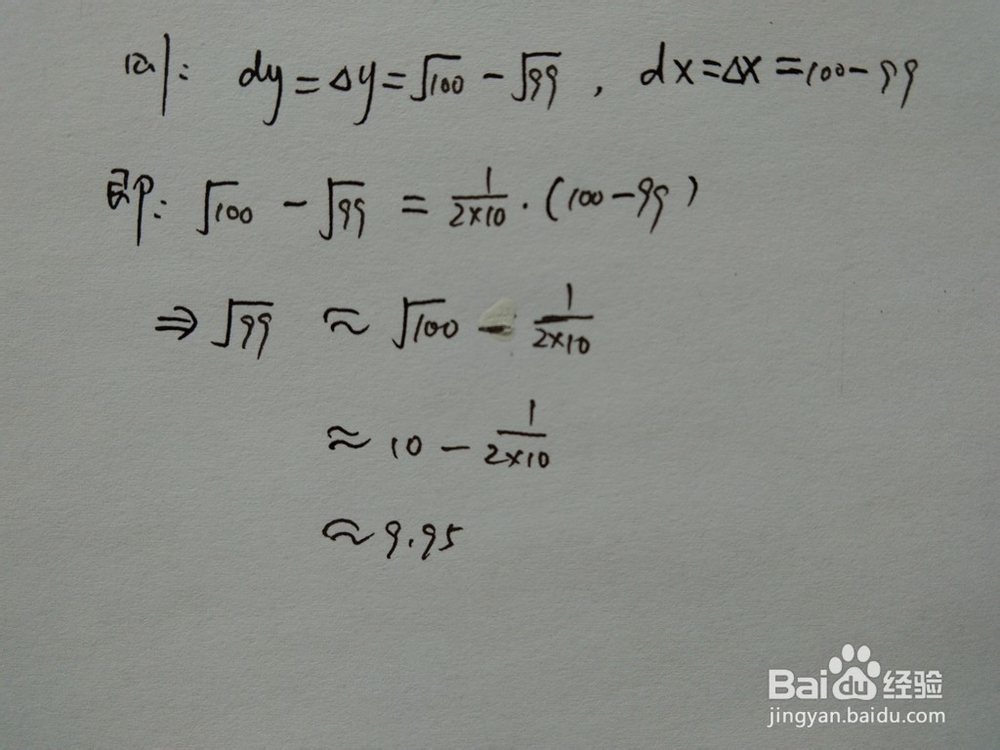 则: dy=Δy=√100-√99, dx=Δx=100-99
即: √100-√99=1/(2×10)·(100-99)
⇒√99≈√100-1/(2×10)
≈10-1/(2×10)
≈9.95
Baidu经验
jingyan.baidu.com